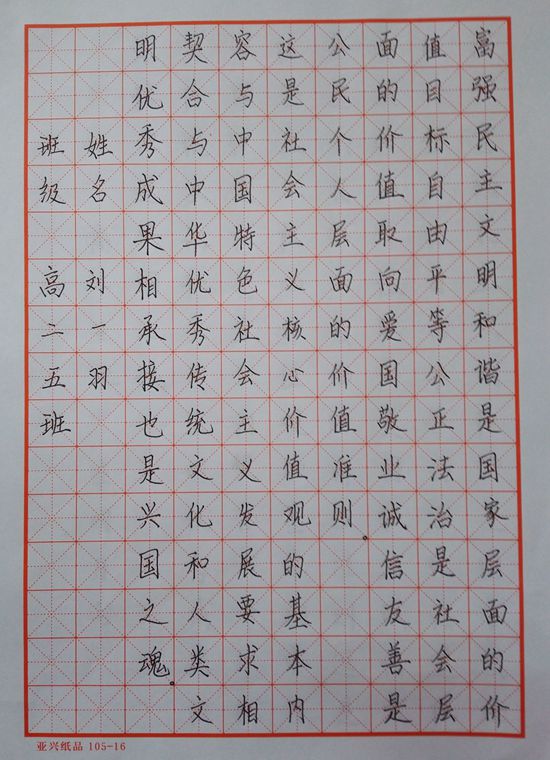 富强民主文明和谐是国家层面的价
值目标自由平等公正法治是社会层
面的价值取向爱国敬业诚信友善是
公民个人层面的价值准则。
这是社会主义核心价值观的基本内
容与中国特色社会主义发展要求相
契合与中华优秀传统文化和人类文
明优秀成果相承接也是兴国之魂。
姓名 刘一羽
班级 高二五班
亚兴纸品 105-16